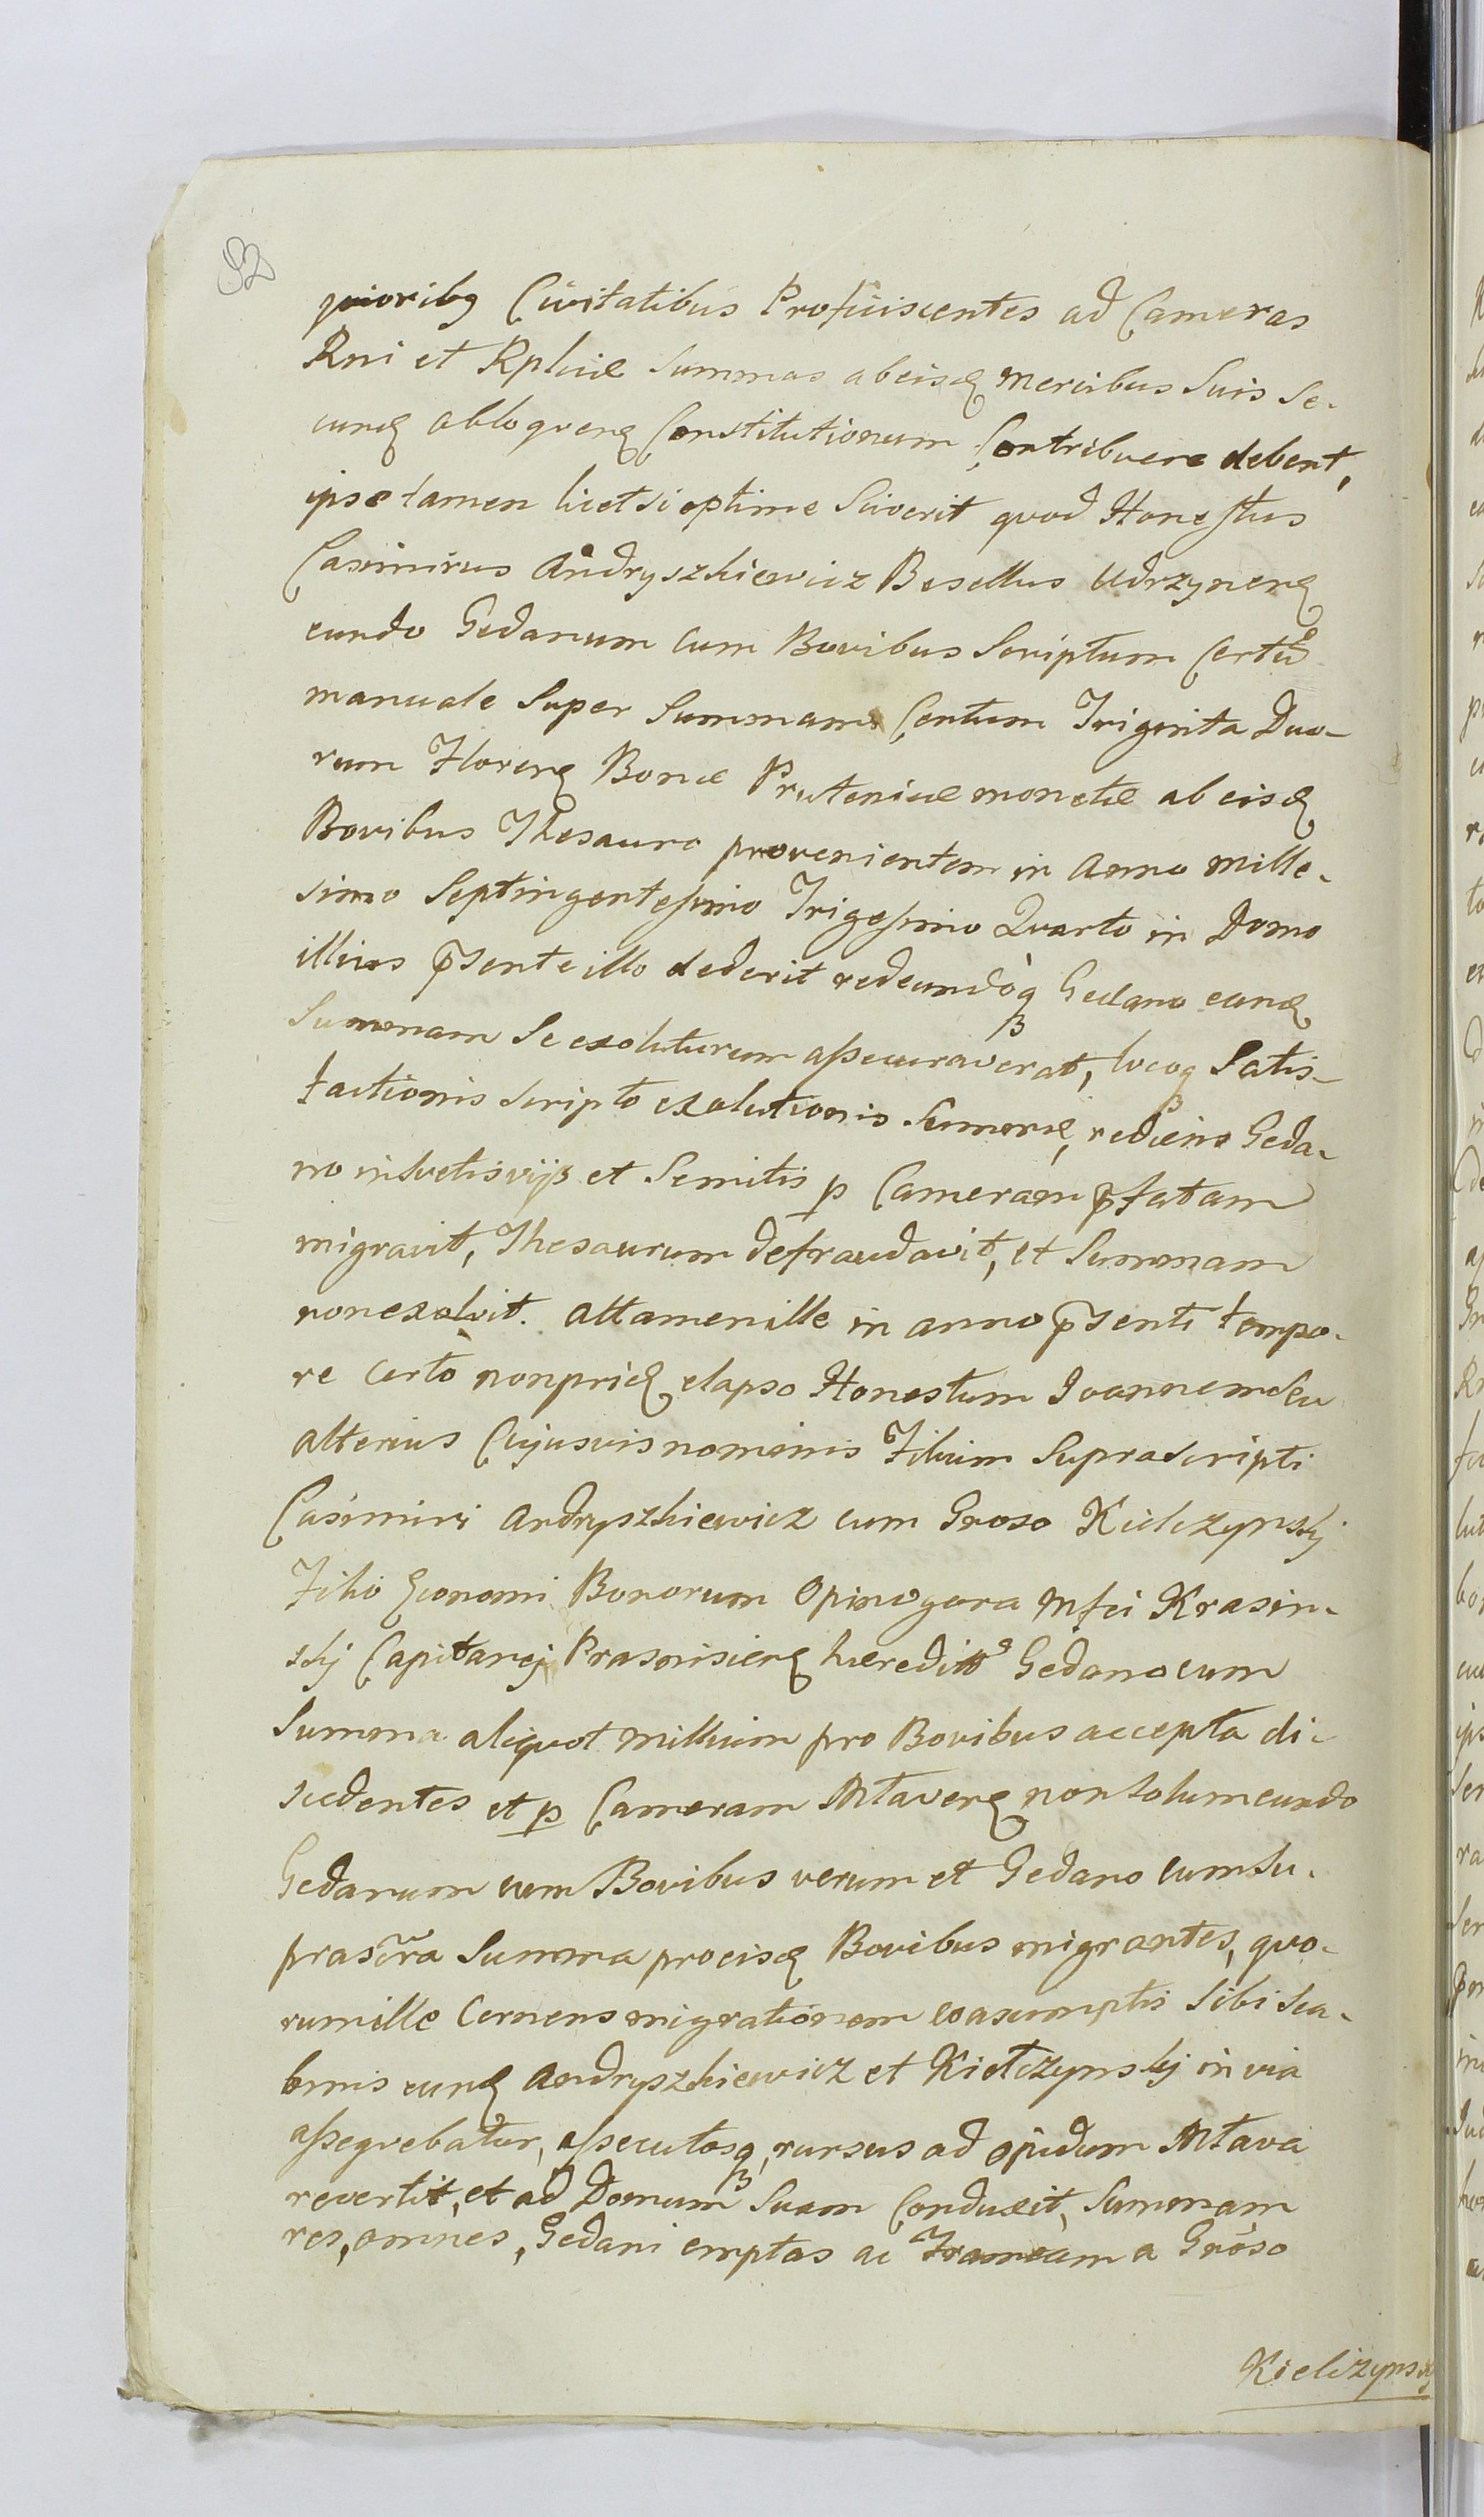 92
prioribq Civitatibus Proficiscentes ad Cameras
Rni et Rplicæ Summas abeisq Mercibus Suis Se-
cunq obloqvenq Constitutionum Contribuere debent,
ipse tamen licet si optime Sciverit qvod Honestus
Casimirus Andryszkiewicz Besellus Udrzynenq
eundo Gedanum cum Bovibus Scriptum Certũ
manuale Super Summam Centum Triginta Duo-
rum Florenq Bonæ Prutenicæ monetæ ab eisq
Bovibus Thesauro provenientem in Anno Mille-
simo Septingentesimo Trigesimo Qvarto in Domo
illius p̃senteillo dederit redeundòq Gedano eanq
Summam Se exoluturum assecuraverat, locoq Satis-
factionis Scripto exolutionis Summæ, rediens Geda-
no insvetis vijs et Semitis p Cameram p̃fatam
migravit, Thesaurum defraudavit, et Summam
nonexolvit. Attamenille in anno p̃senti tempo-
re certò nonpridq elapso Honestum Joannem Seu
alterius Cujusvis nominis Filium Suprascripti
Casimiri Andryszkiewicz cum Groso Kielczynskj
Filio Œconomi Bonorum Opinogora Mfci Krasin-
skj Capitanej Prasnisienq hæredittõ Gedano cum
Summa aliqvot Millium pro Bovibus accepta di-
scedentes et p Cameram Mlavenq non Solum eundo
Gedanum cum Bovibus verum et Gedano cum Su-
prascr̃a Summa pro eisq Bovibus migrantes, qvo-
rumille Cernens migrationem coasumptis Sibi Sca-
binis eunq Andryszkiewicz et Kielczynskj in via
assegvebatur, assecutosq, rursus ad opidum Mlava
revertit, et ad Domum Suam Conduxit, Summam
res, omnes, Gedani emptas ac Frameam a Gròso
Kielczynskj